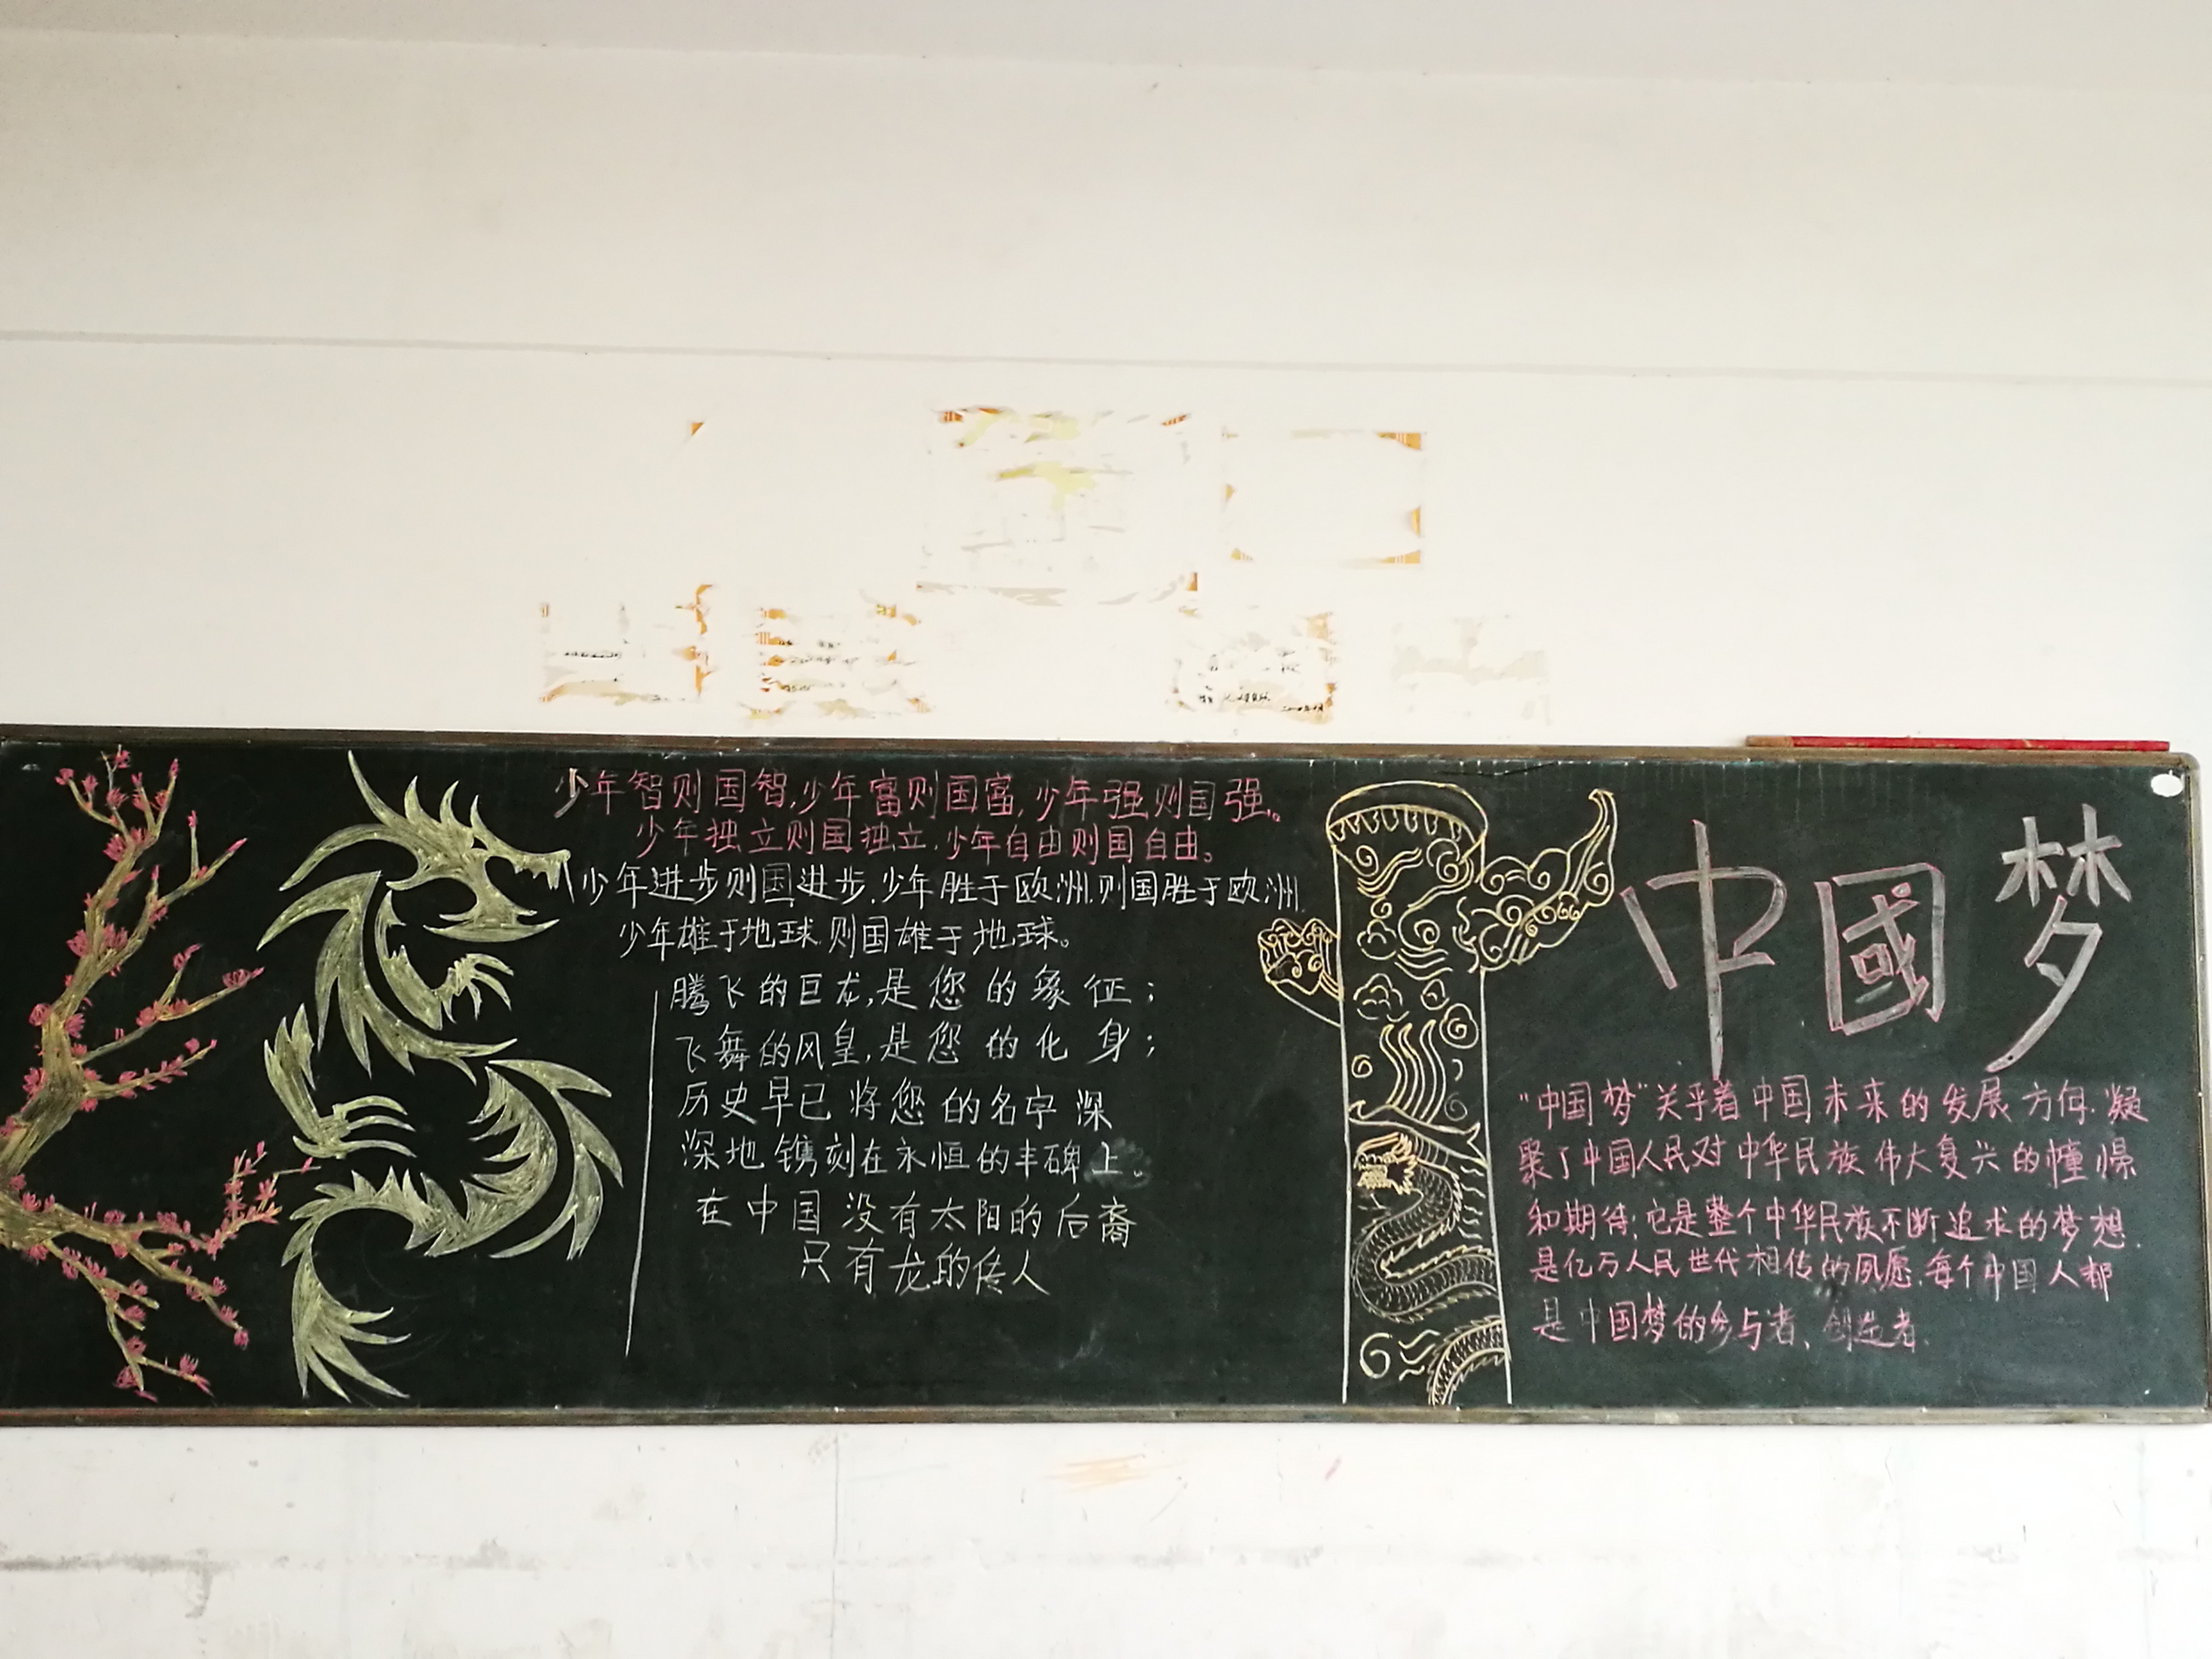 少年智则国智,少年富则国富,少年强则国强。
少年独立则国独立,少年自由则国自由。
少年进步则国进步,少年胜于欧洲,则国胜于欧洲
少年雄于地球,则国雄于地球。
腾飞的巨龙,是您的象征;
飞舞的风皇,是您的化身;
历史早已将您的名字深
深地镌刻在永恒的丰碑上。
在中国没有太阳的后裔
只有龙的传人
中國梦
"中国梦"关乎着中国未来的发展方向,凝
聚了中国人民对中华民族伟大复兴的憧憬
和期待;它是整个中华民族不断追求的梦想,
是亿万人民世代相传的夙愿,每个中国人都
是中国梦的参与者、创造者.